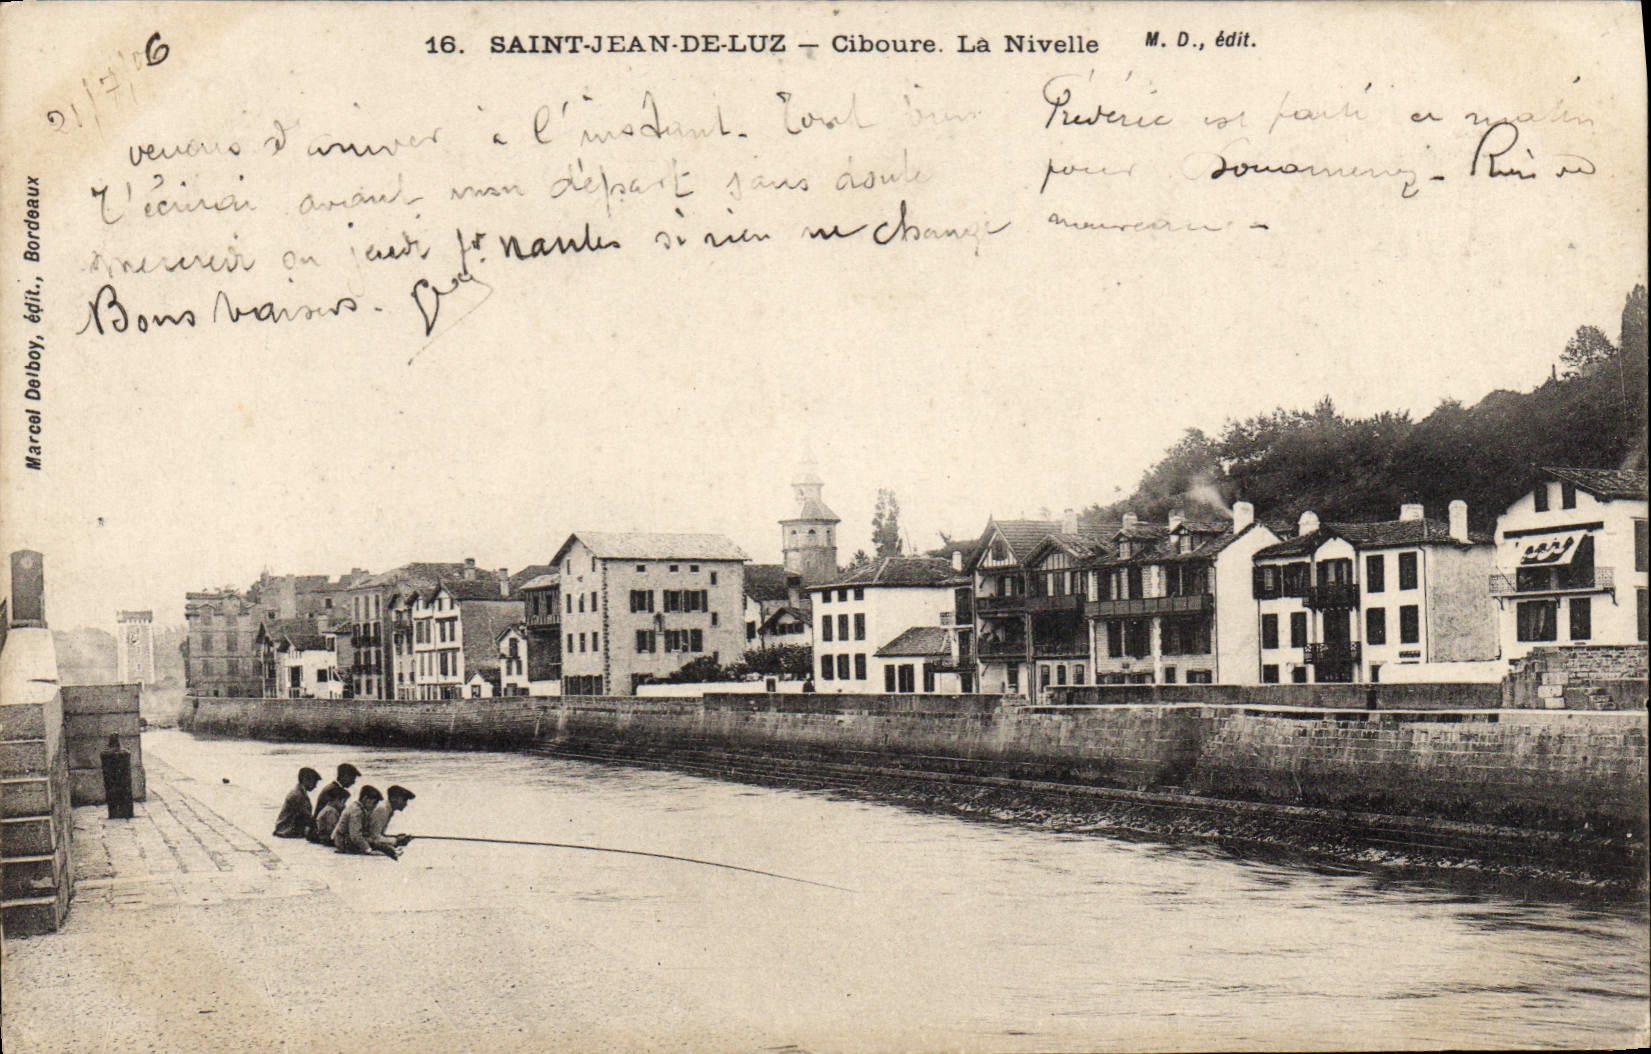 16. SAINT-JEAN-DE-LUZ — Ciboure. La Nivelle M. D., édit.
21/7/06
venons d'arriver à l'instant. Tout bien
T'écrirai avant mon départ sans doute
mercredi ou jeudi pr. Nantes si rien ne change
Bons baisers. Guy
Frédéric est parti ce matin
pour Douarnenez - Rien de
nouveau -
Marcel Delboy, édit., Bordeaux